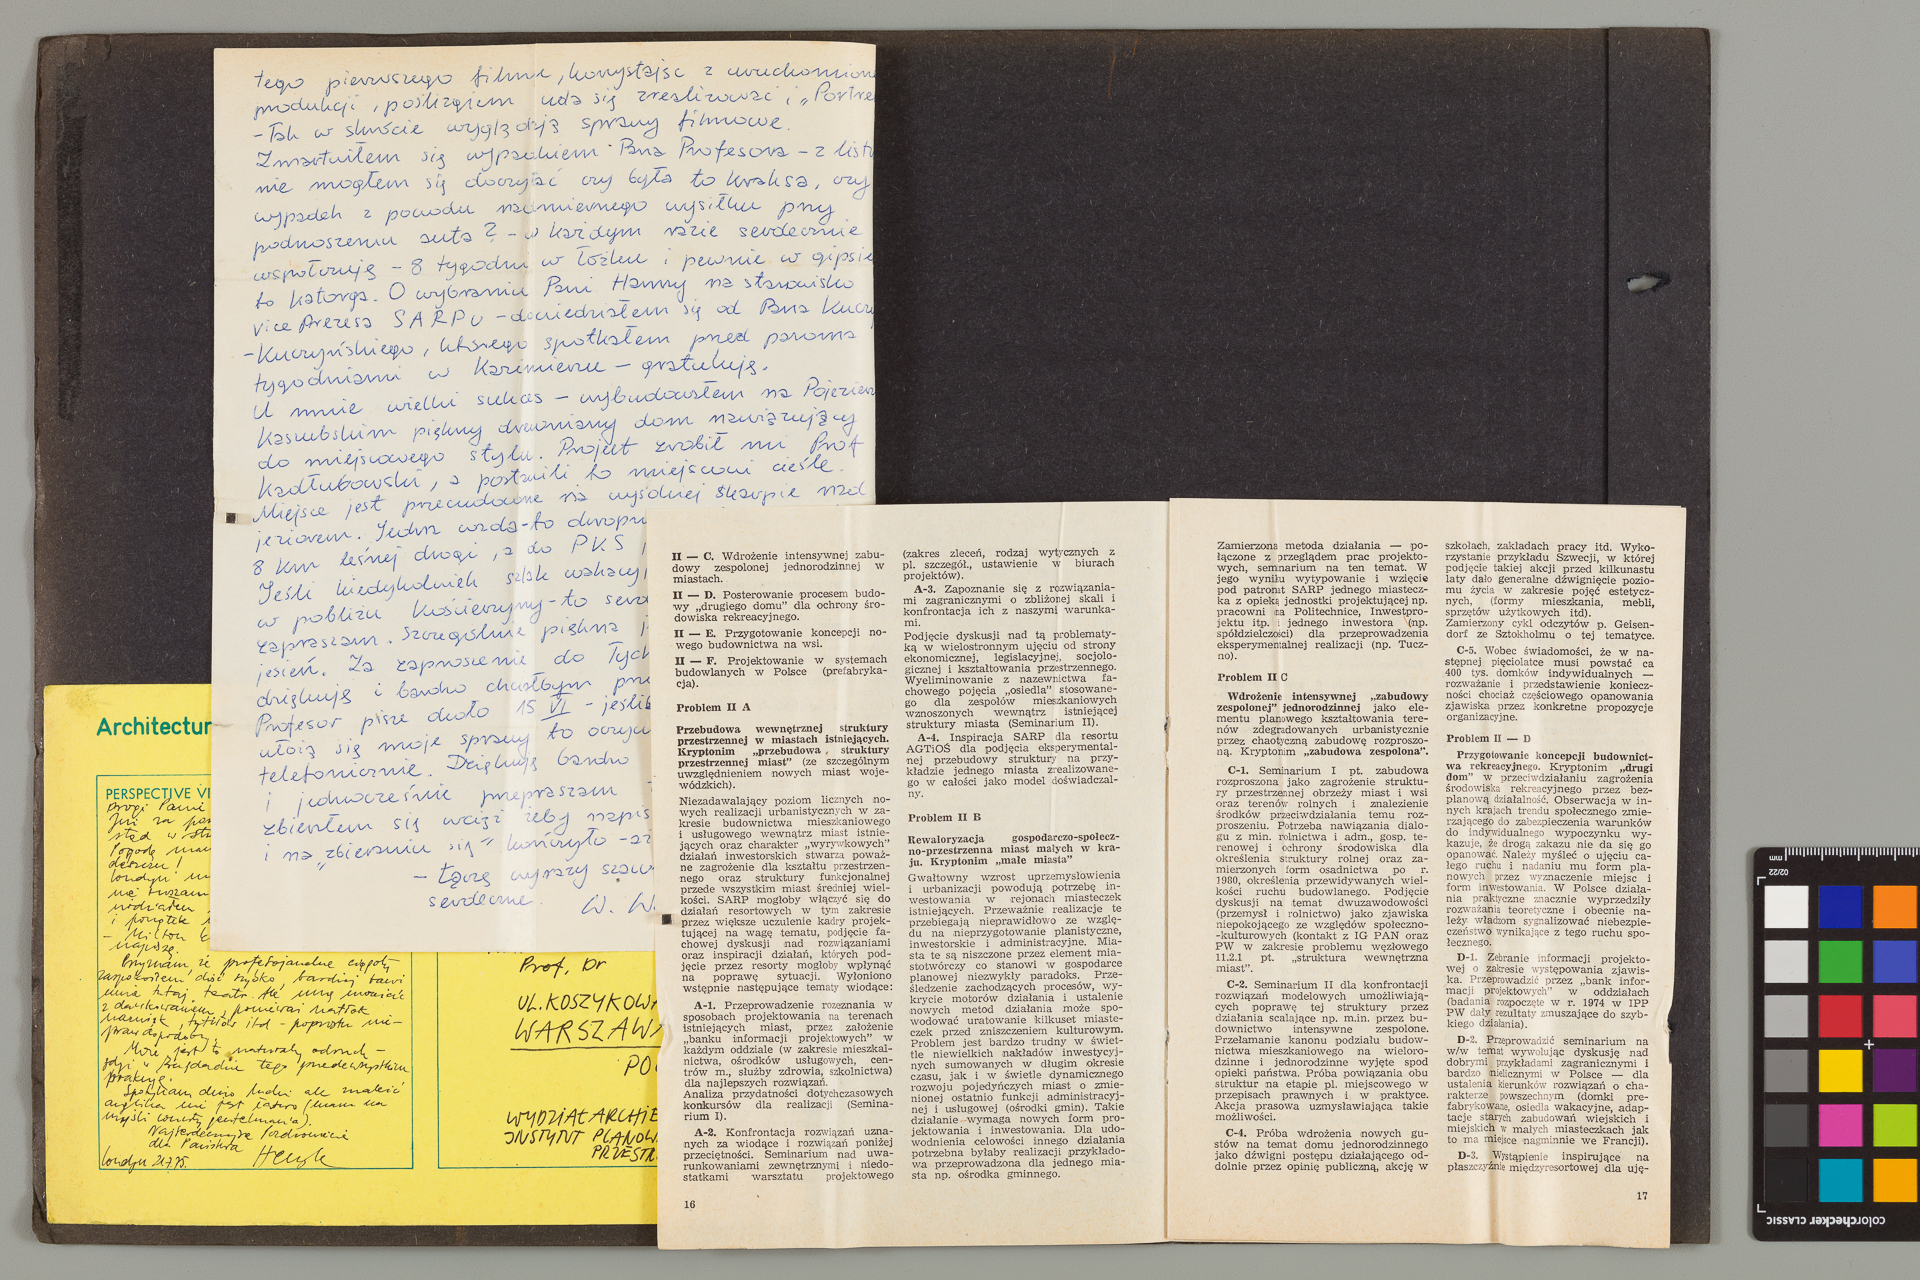 tego pierwszego filmu, korzystając z uruchomion
produkcji, poślizgiem uda się zrealizować i „Portre
- Tak w skrócie wyglądają sprawy filmowe.
Zmartwiłem się wypadkiem Pana Profesora – z listu
nie mogłem się doczytać czy była to kraksa, czy
wypadek z powodu nadmiernego wysiłku przy
podnoszeniu auta? – w każdym razie serdecznie
współczuję – 8 tygodni w łóżku i pewnie w gipsie
to katorga. O wybraniu Pani Hanny na stanowisko
vice Prezesa SARPu – dowiedziałem się od Pana Kuczy
-Kuczyńskiego, którego spotkałem przed paroma
tygodniami w Kazimierzu – gratuluję.
U mnie wielki sukces – wybudowałem na Pojezierz
Kaszubskim piękny drewniany dom nawiązujący
do miejscowego stylu. Projekt zrobił mi Prof
Kadłubowski, a postawili to miejscowi cieśle.
Miejsce jest przecudowne na wysokiej skarpie nad
jeziorem. Jedna wada – to dwopr
8 km leśnej drogi, a do PKS
Jeśli kiedykolwiek szlak wakacyj
w pobliżu Kościerzyny – to serd
zapraszam. Szczególnie piękna j
jesień. Za zaproszenie do Tych
dziękuję i bardzo chciałbym prz
Profesor pisze około 15 VI – jeśli
ułożą się moje sprawy to oczyw
telefonicznie. Dziękuję bardzo
i jednocześnie przepraszam
zbierałem się wciąż żeby napis
i na „zbieraniu się” kończyło – aż
– łączę wyrazy szacu
serdeczne. W. W.
Architectur
PERSPECTIVE VI
Drogi Panie
Już za
stąd w
Pogodę
deszczu!
Londyn
i początek
– Milton
napiszę.
Przyznam, że profesjonalne
zaspokojenie dość szybko, bardziej bawi
mnie tutaj teatr.
z dyskusowaniem, ponieważ natłok
nazwisk, tytułów itd – poprostu nie-
prawdopodobny.
Może jest to naturalny odruch –
Spotykam dużo ludzi ale znaleźć
anglika nie jest łatwo (mam na
myśli
Najserdeczniejsze Pozdrowienia
dla Państwa
Londyn 21.7.75. Henryk
Prof. Dr
UL. KOSZYKOWA
WARSZAWA
PO
WYDZIAŁ ARCHIE
INSTYTUT PLANOWA
PRZESTR
II — C. Wdrożenie intensywnej zabu-
dowy zespolonej jednorodzinnej w
miastach.
II — D. Posterowanie procesem budo-
wy „drugiego domu” dla ochrony śro-
dowiska rekreacyjnego.
II — E. Przygotowanie koncepcji no-
wego budownictwa na wsi.
II — F. Projektowanie w systemach
budowlanych w Polsce (prefabryka-
cja).
Problem II A
Przebudowa wewnętrznej struktury
przestrzennej w miastach istniejących.
Kryptonim „przebudowa struktury
przestrzennej miast” (ze szczególnym
uwzględnieniem nowych miast woje-
wódzkich).
Niezadawalający poziom licznych no-
wych realizacji urbanistycznych w za-
kresie budownictwa mieszkaniowego
i usługowego wewnątrz miast istnie-
jących oraz charakter „wyrywkowych”
działań inwestorskich stwarza poważ-
ne zagrożenie dla kształtu przestrzen-
nego oraz struktury funkcjonalnej
przede wszystkim miast średniej wiel-
kości. SARP mogłoby włączyć się do
działań resortowych w tym zakresie
przez większe uczulenie kadry projek-
tującej na wagę tematu, podjęcie fa-
chowej dyskusji nad rozwiązaniami
oraz inspiracji działań, których pod-
jęcie przez resorty mogłoby wpłynąć
na poprawę sytuacji. Wyłoniono
wstępnie następujące tematy wiodące:
A-1. Przeprowadzenie rozeznania w
sposobach projektowania na terenach
istniejących miast, przez założenie
„banku informacji projektowych” w
każdym oddziale (w zakresie mieszkal-
nictwa, ośrodków usługowych, cen-
trów m., służby zdrowia, szkolnictwa)
dla najlepszych rozwiązań.
Analiza przydatności dotychczasowych
konkursów dla realizacji (Semina-
rium I).
A-2. Konfrontacja rozwiązań uzna-
nych za wiodące i rozwiązań poniżej
przeciętności. Seminarium nad uwa-
runkowaniami zewnętrznymi i niedo-
statkami warsztatu projektowego
16
(zakres zleceń, rodzaj wytycznych z
pl. szczegół., ustawienie w biurach
projektów).
A-3. Zapoznanie się z rozwiązania-
mi zagranicznymi o zbliżonej skali i
konfrontacja ich z naszymi warunka-
mi.
Podjęcie dyskusji nad tą problematy-
ką w wielostronnym ujęciu od strony
ekonomicznej, legislacyjnej, socjolo-
gicznej i kształtowania przestrzennego.
Wyeliminowanie z nazewnictwa fa-
chowego pojęcia „osiedla” stosowane-
go dla zespołów mieszkaniowych
wznoszonych wewnątrz istniejącej
struktury miasta (Seminarium II).
A-4. Inspiracja SARP dla resortu
AGTiOŚ dla podjęcia eksperymental-
nej przebudowy struktury na przy-
kładzie jednego miasta zrealizowane-
go w całości jako model doświadczal-
ny.
Problem II B
Rewaloryzacja gospodarczo-społecz-
no-przestrzenna miast małych w kra-
ju. Kryptonim „małe miasta”
Gwałtowny wzrost uprzemysłowienia
i urbanizacji powodują potrzebę in-
westowania w rejonach miasteczek
istniejących. Przeważnie realizacje te
przebiegają nieprawidłowo ze wzglę-
du na nieprzygotowanie planistyczne,
inwestorskie i administracyjne. Mia-
sta te są niszczone przez element mia-
stotwórczy co stanowi w gospodarce
planowej niezwykły paradoks. Prze-
śledzenie zachodzących procesów, wy-
krycie motorów działania i ustalenie
nowych metod działania może spo-
wodować uratowanie kilkuset miaste-
czek przed zniszczeniem kulturowym.
Problem jest bardzo trudny w świet-
tle niewielkich nakładów inwestycyj-
nych sumowanych w długim okresie
czasu, jak i w świetle dynamicznego
rozwoju pojedyńczych miast o zmie-
nionej ostatnio funkcji administracyj-
nej i usługowej (ośrodki gmin). Takie
działanie wymaga nowych form pro-
jektowania i inwestowania. Dla udo-
wodnienia celowości innego działania
potrzebna byłaby realizacji przykłado-
wa przeprowadzona dla jednego mia-
sta np. ośrodka gminnego.
Zamierzona metoda działania — po-
łączone z przeglądem prac projekto-
wych, semnarium na ten temat. W
jego wyniku wytypowanie i wzięcie
pod patronat SARP jednego miastecz-
ka z opieką jednostki projektującej np.
pracowni na Politechnice, Inwestpro-
jektu itp. i jednego inwestora (np.
spółdzielczości) dla przeprowadzenia
eksperymentalnej realizacji (np. Tucz-
no).
Problem II C
Wdrożenie intensywnej „zabudowy
zespolonej” jednorodzinnej jako ele-
mentu planowego kształtowania tere-
nów zdegradowanych urbanistycznie
przez chaotyczną zabudowę rozproszo-
ną. Kryptonim „zabudowa zespolona”.
C-1. Seminarium I pt. zabudowa
rozproszona jako zagrożenie struktu-
ry przestrzennej obrzeży miast i wsi
oraz terenów rolnych i znalezienie
środków przeciwdziałania temu roz-
proszeniu. Potrzeba nawiązania dialo-
gu z min. rolnictwa i adm., gosp. te-
renowej i ochrony środowiska dla
określenia struktury rolnej oraz za-
mierzonych form osadnictwa po r.
1980, określenia przewidywanych wiel-
kości ruchu budowlanego. Podjęcie
dyskusji na temat dwuzawodowości
(przemysł i rolnictwo) jako zjawiska
niepokojącego ze względów społeczno-
-kulturowych (kontakt z IG PAN oraz
PW w zakresie problemu węzłowego
11.2.1 pt. „struktura wewnętrzna
miast”.
C-2. Seminarium II dla konfrontacji
rozwiązań modelowych umożliwiają-
cych poprawę tej struktury przez
działania scalające np. m.in. przez bu-
downictwo intensywne zespolone.
Przełamanie kanonu podziału budow-
nictwa mieszkaniowego na wieloro-
dzinne i jednorodzinne wyjęte spod
opieki państwa. Próba powiązania obu
struktur na etapie pl. miejscowego w
przepisach prawnych i w praktyce.
Akcja prasowa uzmysławiająca takie
możliwości.
C-4. Próba wdrożenia nowych gu-
stów na temat domu jednorodzinnego
jako dźwigni postępu działającego od-
dolnie przez opinię publiczną, akcję w
szkołach, zakładach pracy itd. Wyko-
rzystanie przykładu Szwecji, w której
podjęcie takiej akcji przed kilkunastu
laty dało generalne dźwignięcie pozio-
mu życia w zakresie pojęć estetycz-
nych, (formy mieszkania, mebli,
sprzętów użytkowych itd).
Zamierzony cykl odczytów p. Geisen-
dorf ze Sztokholmu o tej tematyce.
C-5. Wobec świadomości, że w na-
stępnej pięciolatce musi powstać ca
400 tys. domków indywidualnych —
rozważanie i przedstawienie koniecz-
ności chociaż częściowego opanowania
zjawiska przez konkretne propozycje
organizacyjne.
Problem II — D
Przygotowanie koncepcji budownict-
wa rekreacyjnego. Kryptonim „drugi
dom” w przeciwdziałaniu zagrożenia
środowiska rekreacyjnego przez bez-
planową działalność. Obserwacja w in-
nych krajach trendu społecznego zmie-
rzającego do zabezpieczenia warunków
do indywidualnego wypoczynku wy-
kazuje, że drogą zakazu nie da się go
opanować. Należy myśleć o ujęciu ca-
łego ruchu i nadaniu mu form pla-
nowych przez wyznaczenie miejsc i
form inwestowania. W Polsce działa-
nia praktyczne znacznie wyprzedziły
rozważania teoretyczne i obecnie na-
leży władzom sygnalizować niebezpie-
czeństwo wynikające z tego ruchu spo-
łecznego.
D-1. Zebranie informacji projekto-
wej o zakresie występowania zjawis-
ka. Przeprowadzić przez „bank infor-
macji projektowych” w oddziałach
(badania rozpoczęte w r. 1974 w IPP
PW dały rezultaty zmuszające do szyb-
kiego działania).
D-2. Przeprowadzić seminarium na
w/w temat wywołując dyskusję nad
dobrymi przykładami zagranicznymi i
bardzo nielicznymi w Polsce — dla
ustalenia kierunków rozwiązań o cha-
rakterze powszechnym (domki pre-
fabrykowane, osiedla wakacyjne, adap-
tacje starych zabudowań wiejskich i
miejskich w małych miasteczkach jak
to ma miejsce nagminnie we Francji).
D-3. Wystąpienie inspirujące na
płaszczyźnie międzyresortowej dla uję-
17
mm
02/22
colorchecker CLASSIC